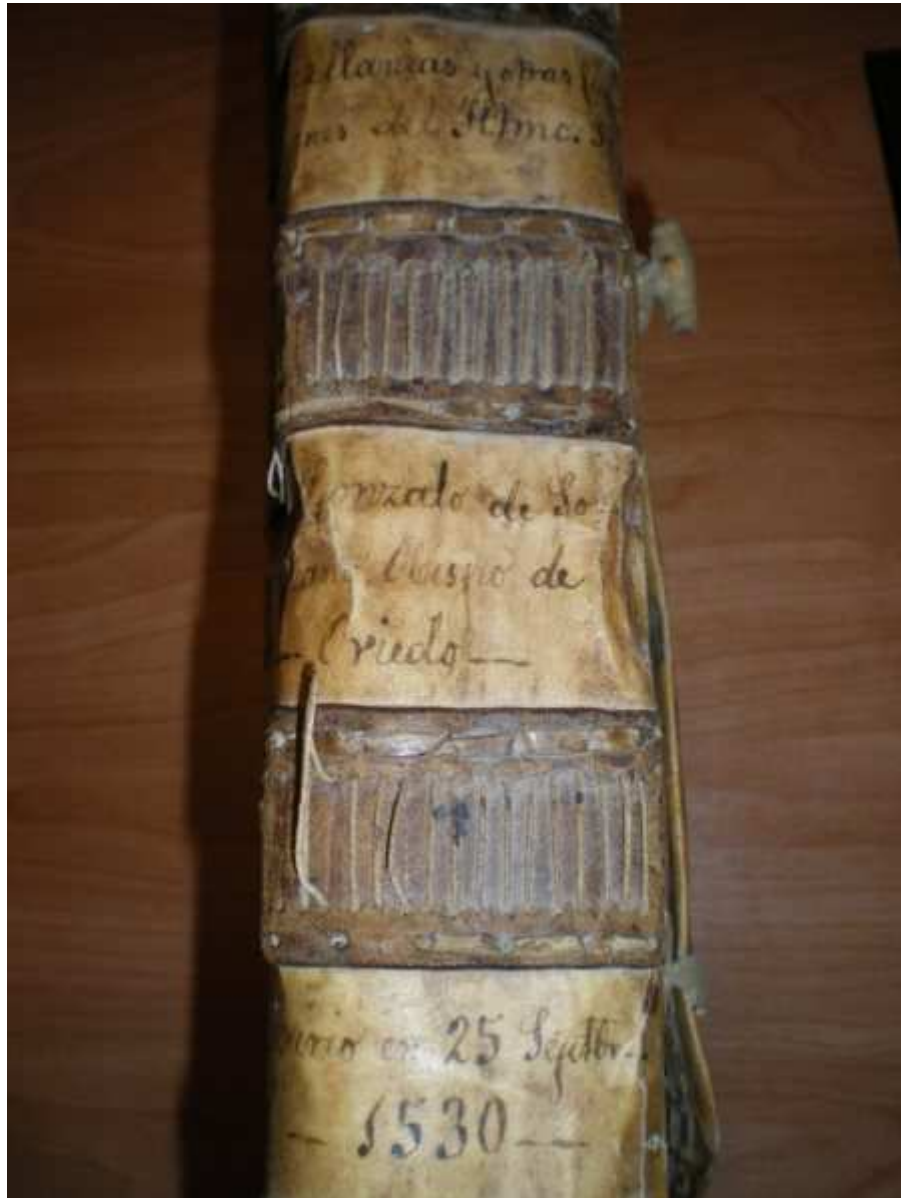 ellanias y otras
del Illmo. S
Gonzalo de So-
Obispo de
— Oviedo —
en 25 Septbr.
— 1530 —